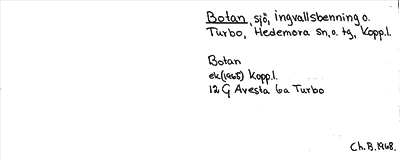 Botan, sjö, Ingvallsbenning o.
Turbo, Hedemora sn, o. tg, Kopp.l.
Botan
ek(1965) Kopp.l.
12 G Avesta 6a Turbo
Ch.B.1968.